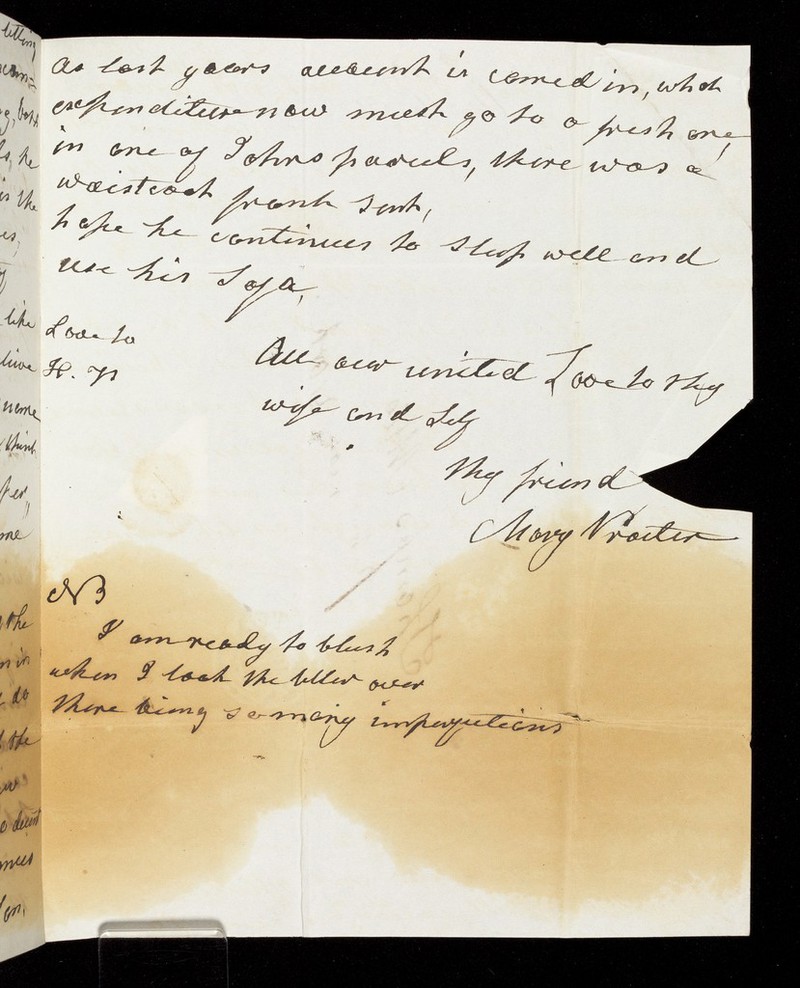 As last years account is carried in, what
expenditure now must go to a fresh one,
in one of Johns parcels, there was a
waistcoat front sent,
hope he continues to sleep well and
use his Sofa,
Love to
H.
All our united Love to thy
wife and Self
thy friend
Mary Procter
NB
I am ready to blush
when I look the letter over
there being so many imperfections
letting
he
is the
like
name
think
me
the
do
the
decent